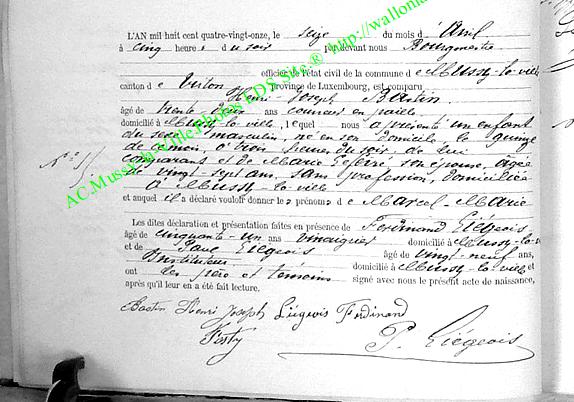 L'AN mil huit cent quatre-vingt-onze, le seize du mois d'Avril
à cinq heures du soir par devant nous Bourgmestre
officier de l'état civil de la commune de Mussy-la-ville
canton de Virton province de Luxembourg, est comparu
Henri Joseph Bastin
âgé de trente-trois ans couvreur en paille
domicilié à Mussy-la-ville, lequel nous a présenté un enfant
du sexe masculin, né en son domicile le quinze
de ce mois, à trois heures du soir de lui
comparant et de Marie Lefèvre son épouse, âgée
de vingt-sept ans, sans profession, domiciliée
à Mussy-la-ville
et auquel il a déclaré vouloir donner les prénoms de Marcel-Marie
Les dites déclaration et présentation faites en présence de Ferdinand Liégeois
âgé de cinquante-un ans domicilié à Mussy-la-v
et de Paul Liégeois âgé de vingt-neuf ans,
Instituteur domicilié à Mussy-la-ville et
ont les père et témoins signé avec nous le présent acte de naissance,
après qu'il leur en a été fait lecture.
Bastin Henri Joseph Liégeois Ferdinand
P. Liégeois
AC.Mussy-la-Ville.Photos EDS Site.® http://wallonia